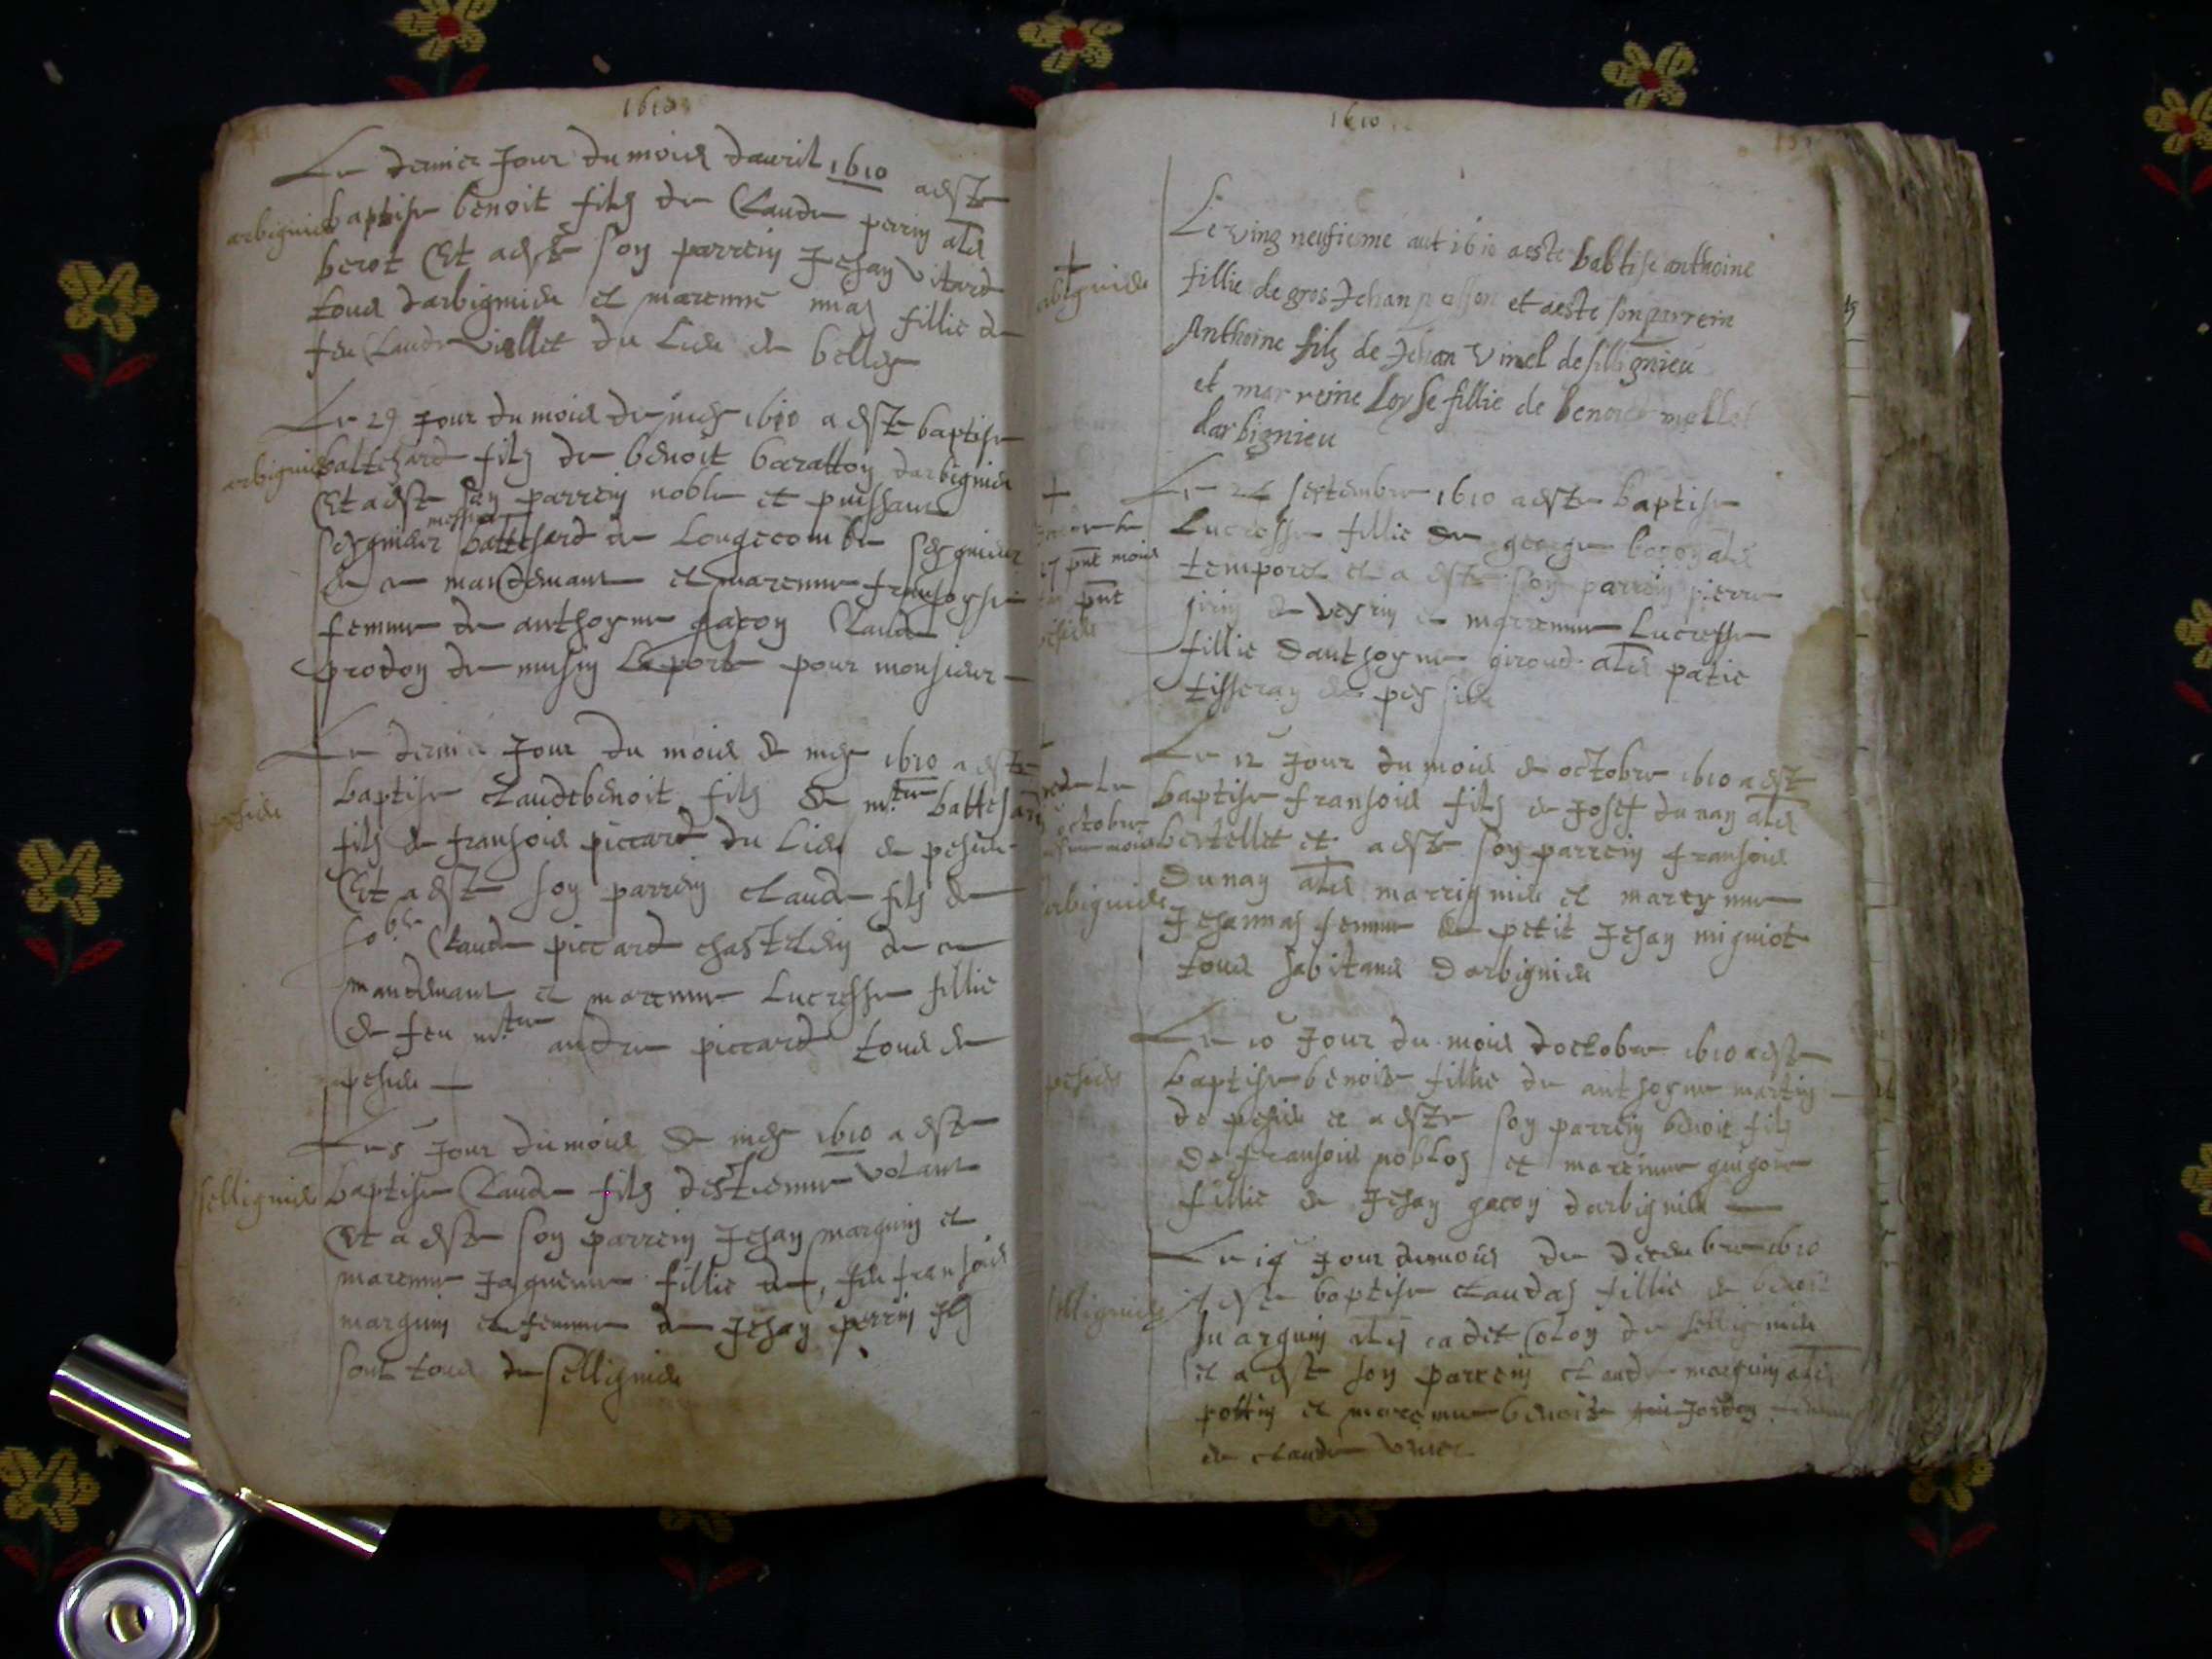 1610
Le dernier Jour du mois dauvril 1610 a este
arbignieu
baptise benoit filz de Claude perrin als
berot Et a este son parrein Jehan vitard
tous darbignieu et marenne mias fillie de
feu Claude viollet du Lieu de belley
Le 29 Jour du mois de may 1610 a este baptise
arbignieu
baltesard filz de benoit baratton darbignieu
Et a este son parrein noble et puissant
messire
seigneur baltesard de Longecombe seigneur
de ce mandemant et marenne fransoyse
femme de anthoyne gacon Claude
prodon de musin La porte pour monsieur
Le dernier Jour du mois de may 1610 a este
baptise claudebenoit filz de mtre baltesard
pesieu
filz de fransois piccard du Lieu de pesieu
Et a este son parrein claude filz de
Claude piccard chastelein de ce
mandemant et marenne Lucresse fillie
de feu mtre andre piccard tous de
pesieu
Le 5 Jour du mois de may 1610 a este
sellignieu
baptise Claude filz destienne volant
Et a este son parrein Jehan marguin et
marenne Jaqueme fillie de feu fransois
marguin et femme de Jehan perrin ilz
sont tous de sellignieu
1610
Le ving neufieme aut 1610 aeste babtise anthoine
arbignieu
fillie de gros Jehan et aeste son parrein
Anthoine filz de Jehan Vinel de sillignieu
et marreine Loyse fillie de benoict mollet
darbignieu
Le 24 septembre 1610 a este baptise
Lucresse fillie de george bozon als
17 pnt mois
temporel et a este son parrein pierre
pnt
de veyrin et marrenne Lucresse
pesieu
fillie danthoyne giroud als patie
tisseran de peysieu
Le 12 Jour du mois de octobre 1610 a este
baptise fransois filz de Josef dunan als
octobre
bertellet et a este son parrein fransois
dunan als marrignieu et mareynne
arbignieu
Jehannas femme de petit Jehan migniot
tous habitans darbignieu
Le 10 Jour du mois doctobre 1610 a este
pesieu
baptise benoite fillie de anthoyne martin
de pesieu et a este son parrein benoit filz
de fransois noblos et marenne guigone
fillie de Jehan gacon darbignieu
Le 14 Jour du mois de decembre 1610
a este baptise claudas fillie de benoit
sellignieu
marguin als cadet Colon de sellignieu
et a este son parrein claude marguin als
pottin et marenne benoite Jordan femme
de claude viver